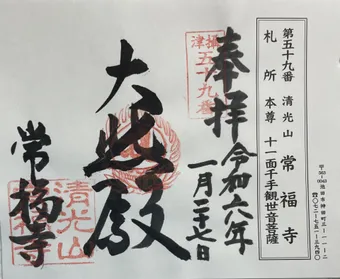 第五十九番 清光山 常福寺
札所本尊 十一面千手観世音菩薩
奉拝
令和六年
一月
攝津
五十九番
大悲殿
常福寺
清光山